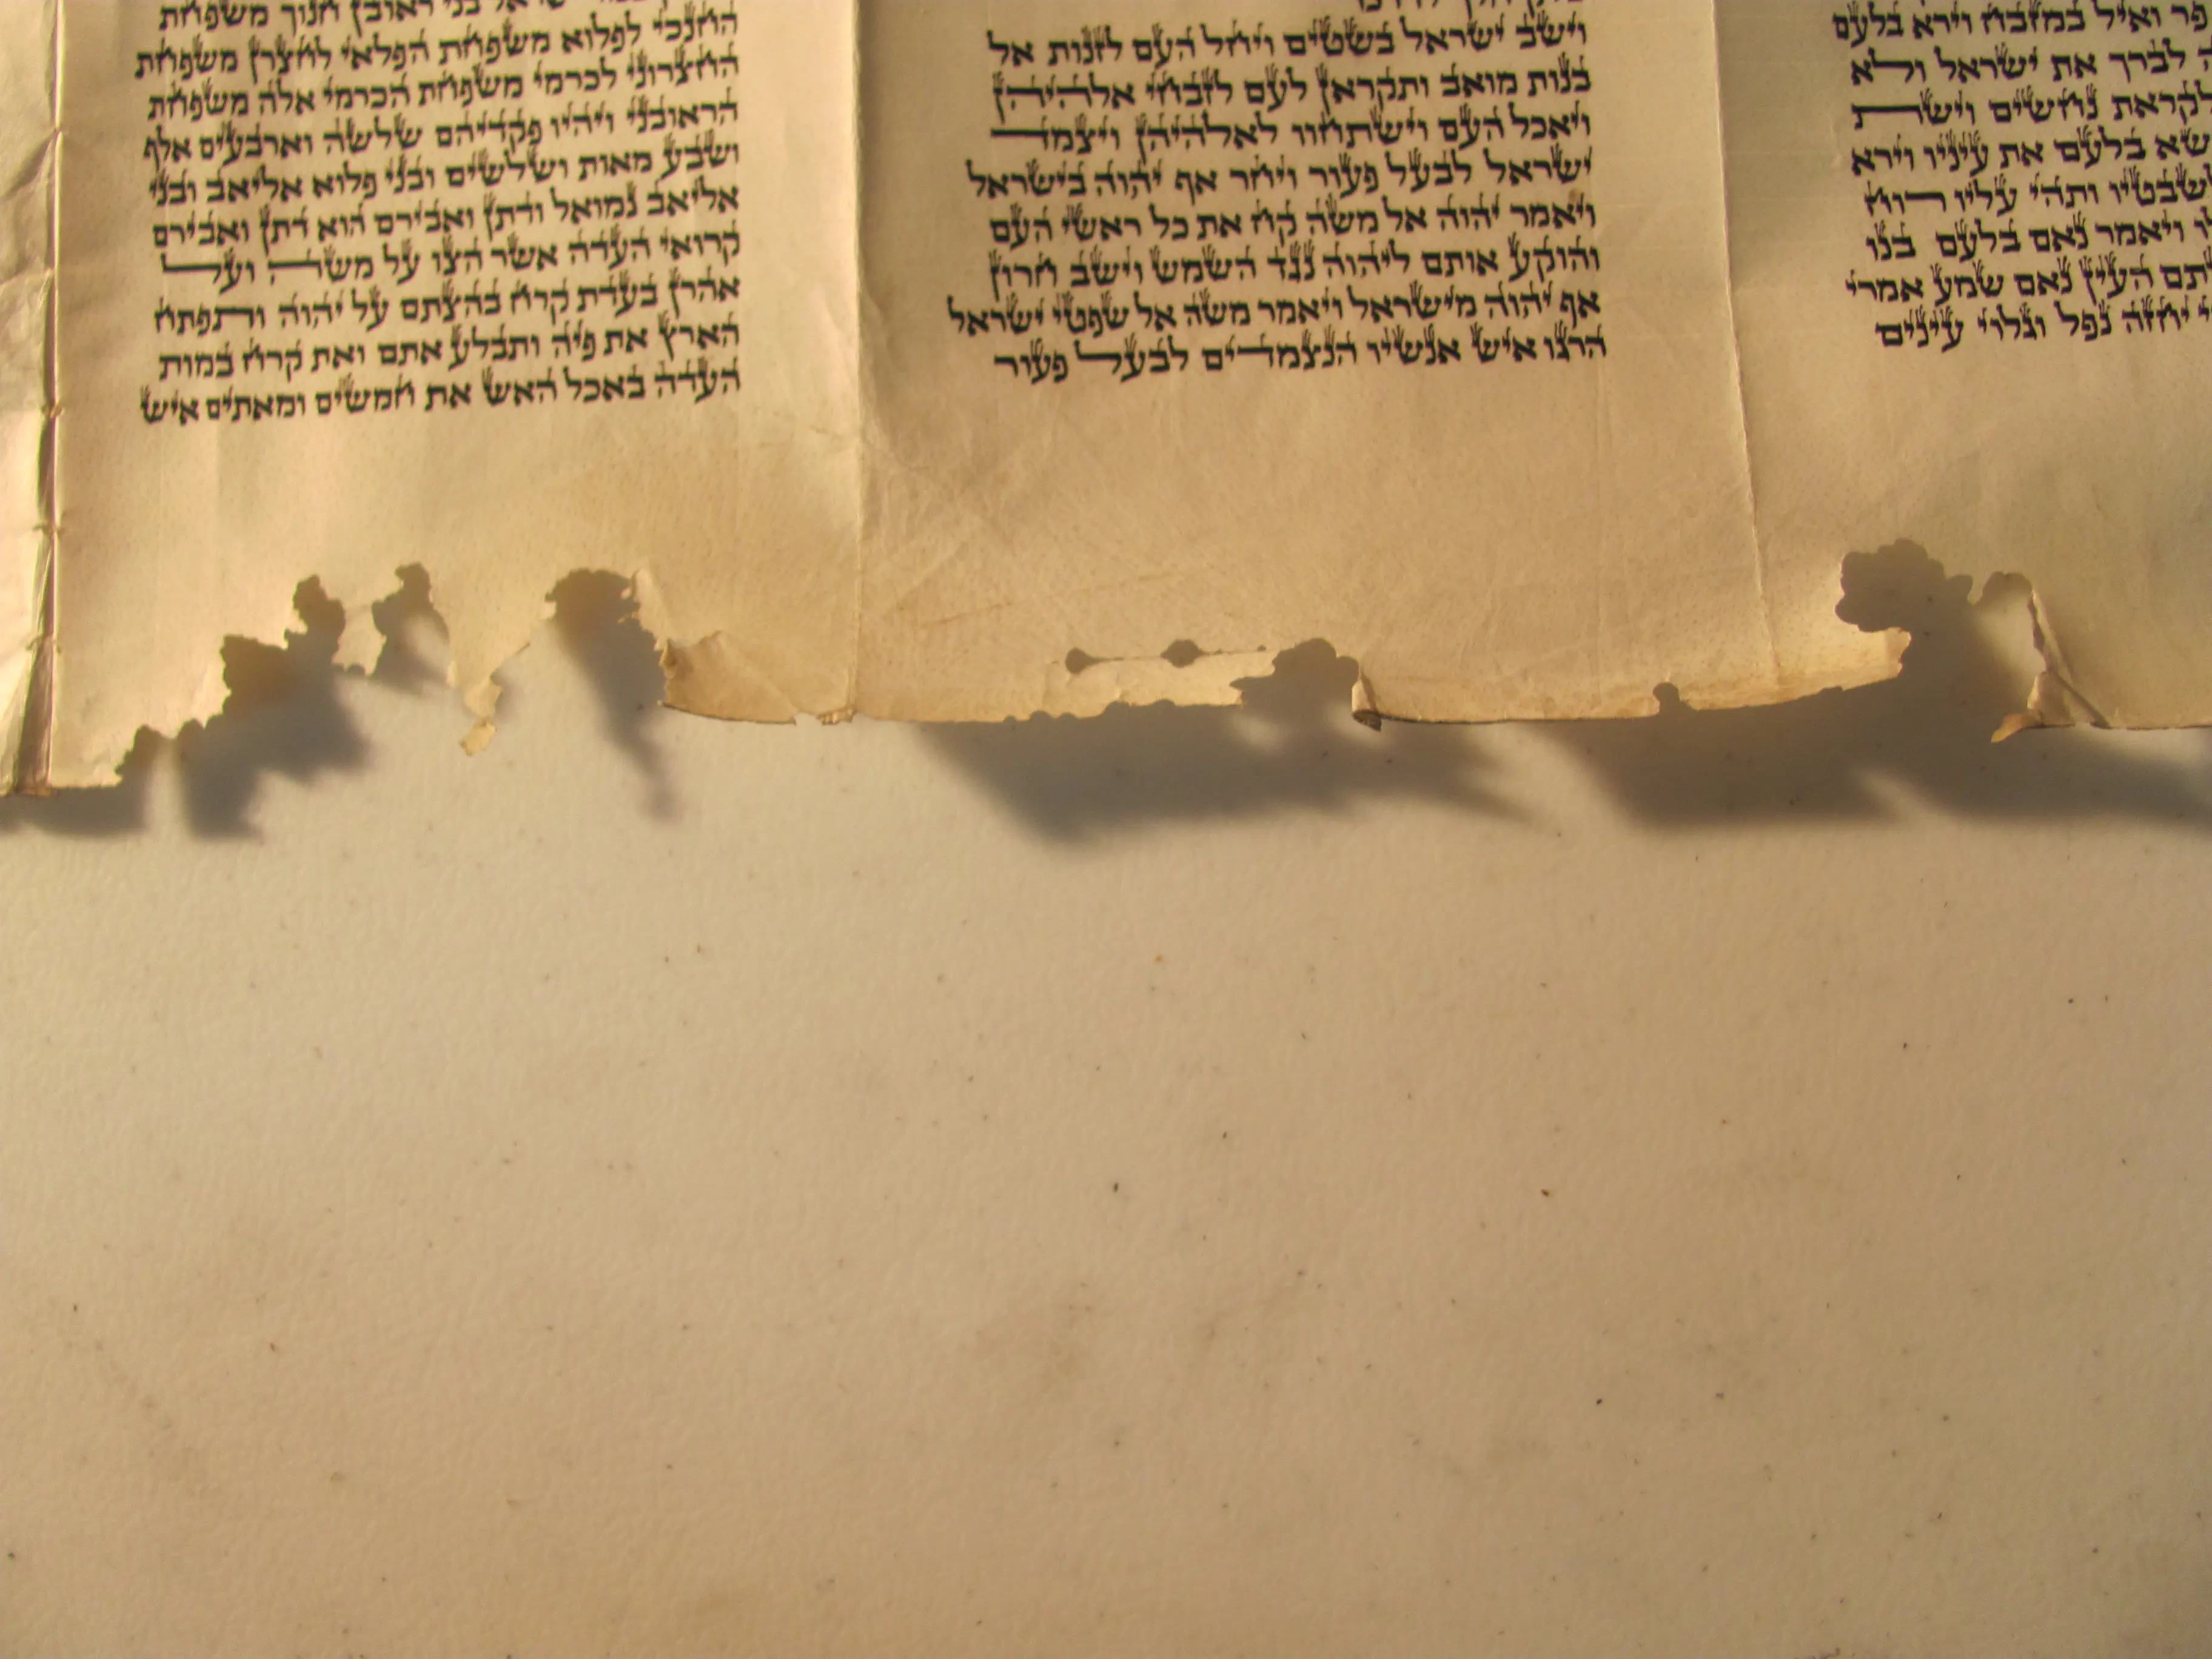 פר ואיל במזבח וירא בלעם
לברך את ישראל ולא
לקראת נחשים וישת
בלעם את עיניו וירא
לשבטיו ותהי עליו רוח
ויאמר נאם בלעם בנו
העין נאם שמע אמרי
יחזה נפל וגלוי עינים
וישב ישראל בשטים ויחל העם לזנות אל
בנות מואב ותקראן לעם לזבחי אלהיהן
ויאכל העם וישתחוו לאלהיהן ויצמד
ישראל לבעל פעור ויחר אף יהוה בישראל
ויאמר יהוה אל משה קח את כל ראשי העם
והוקע אותם ליהוה נגד השמש וישב חרון
אף יהוה מישראל ויאמר משה אל שפטי ישראל
הרגו איש אנשיו הנצמדים לבעל פעור
בני ראובן חנוך משפחת
החנכי לפלוא משפחת הפלאי לחצרן משפחת
החצרוני לכרמי משפחת הכרמי אלה משפחת
הראובני ויהיו פקדיהם שלשה וארבעים אלף
ושבע מאות ושלשים ובני פלוא אליאב ובני
אליאב נמואל ודתן ואבירם הוא דתן ואבירם
קרואי העדה אשר הצו על משה ועל
אהרן בעדת קרח בהצתם על יהוה ותפתח
הארץ את פיה ותבלע אתם ואת קרח במות
העדה באכל האש את חמשים ומאתים איש